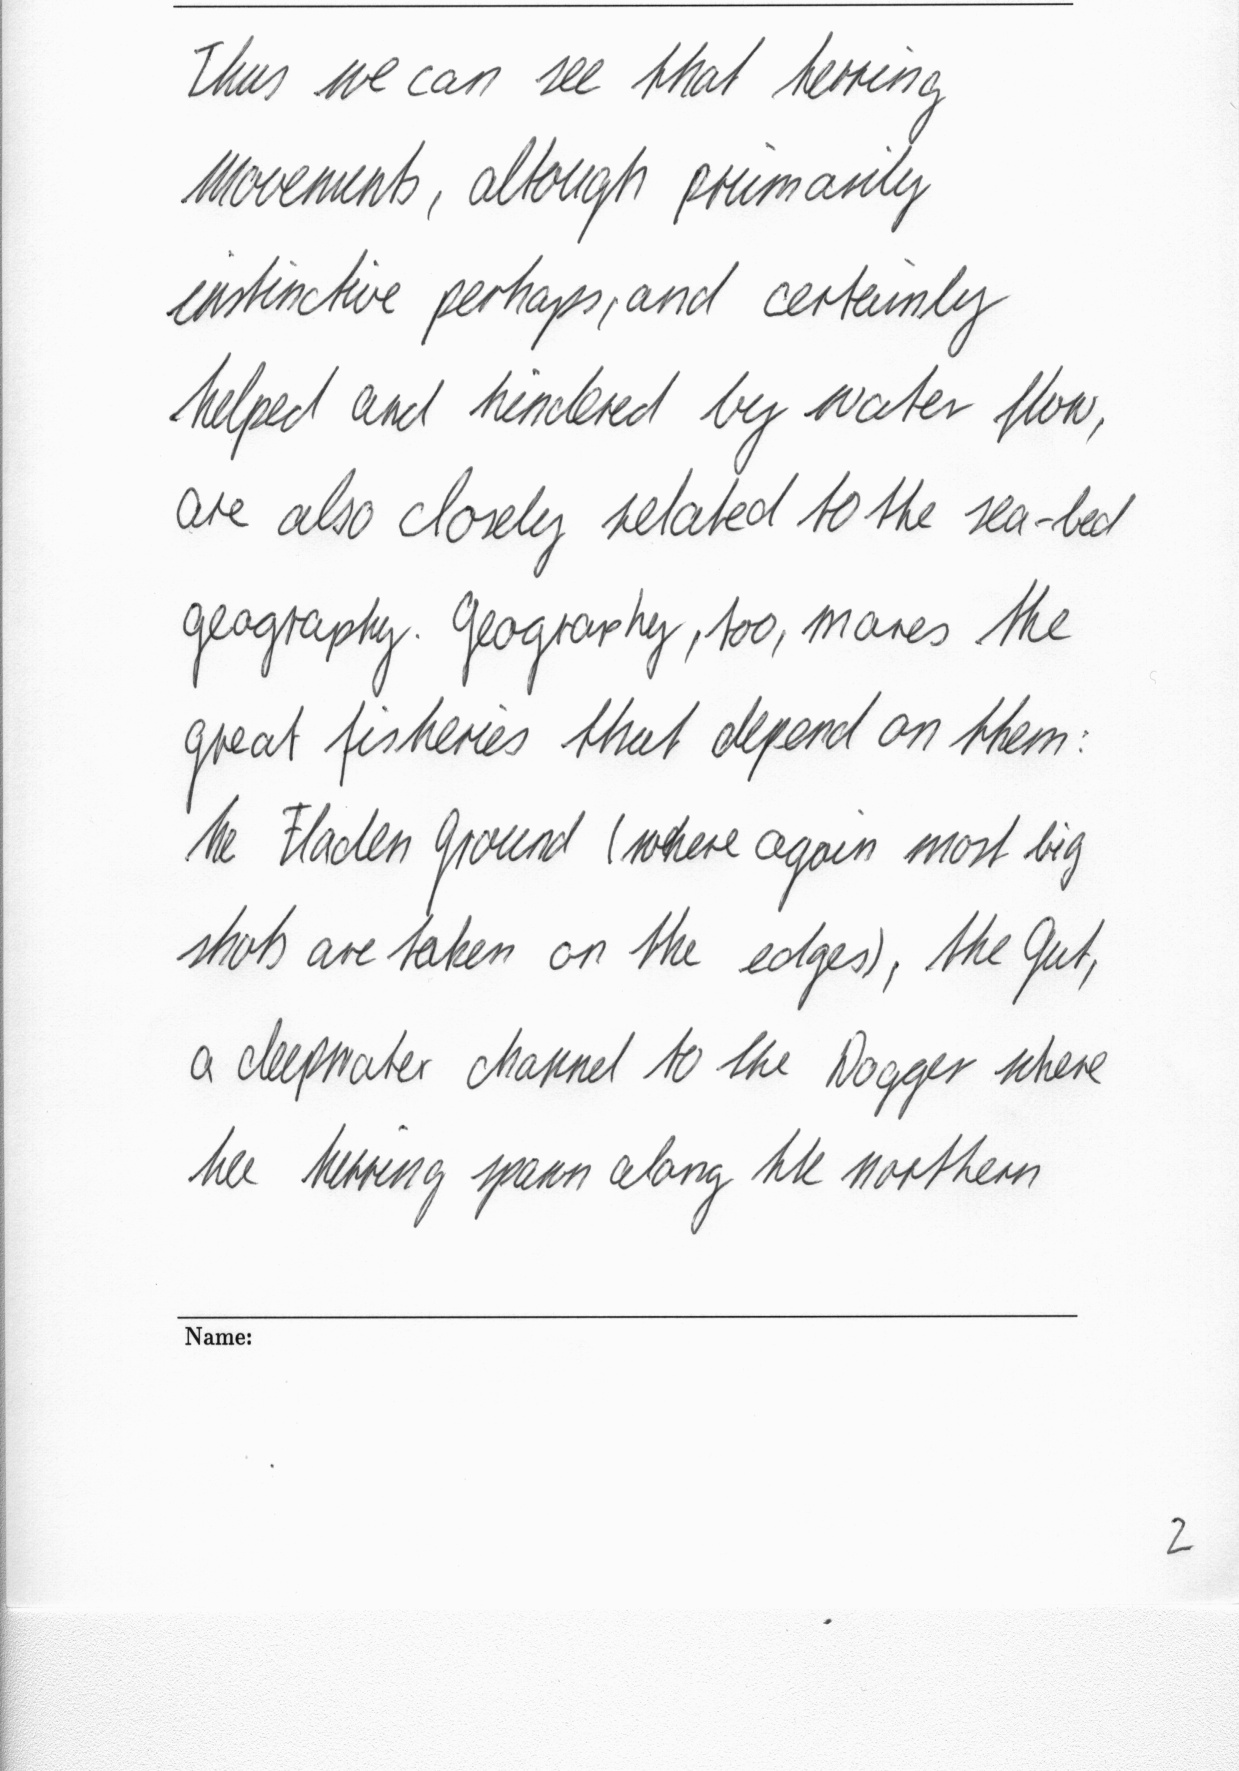 Thus we can see that herring
movements, altough primarily
instinctive perhaps, and certainly
helped and hindered by water flow,
are also closely related to the sea-bed
geography. Geography, too, mares the
great fisheries that depend on them:
the Fladen Ground (where again most big
shots are taken on the edges), the Gut,
a deepwater channel to the Dogger where
the herring spawn along the northern
Name:
2